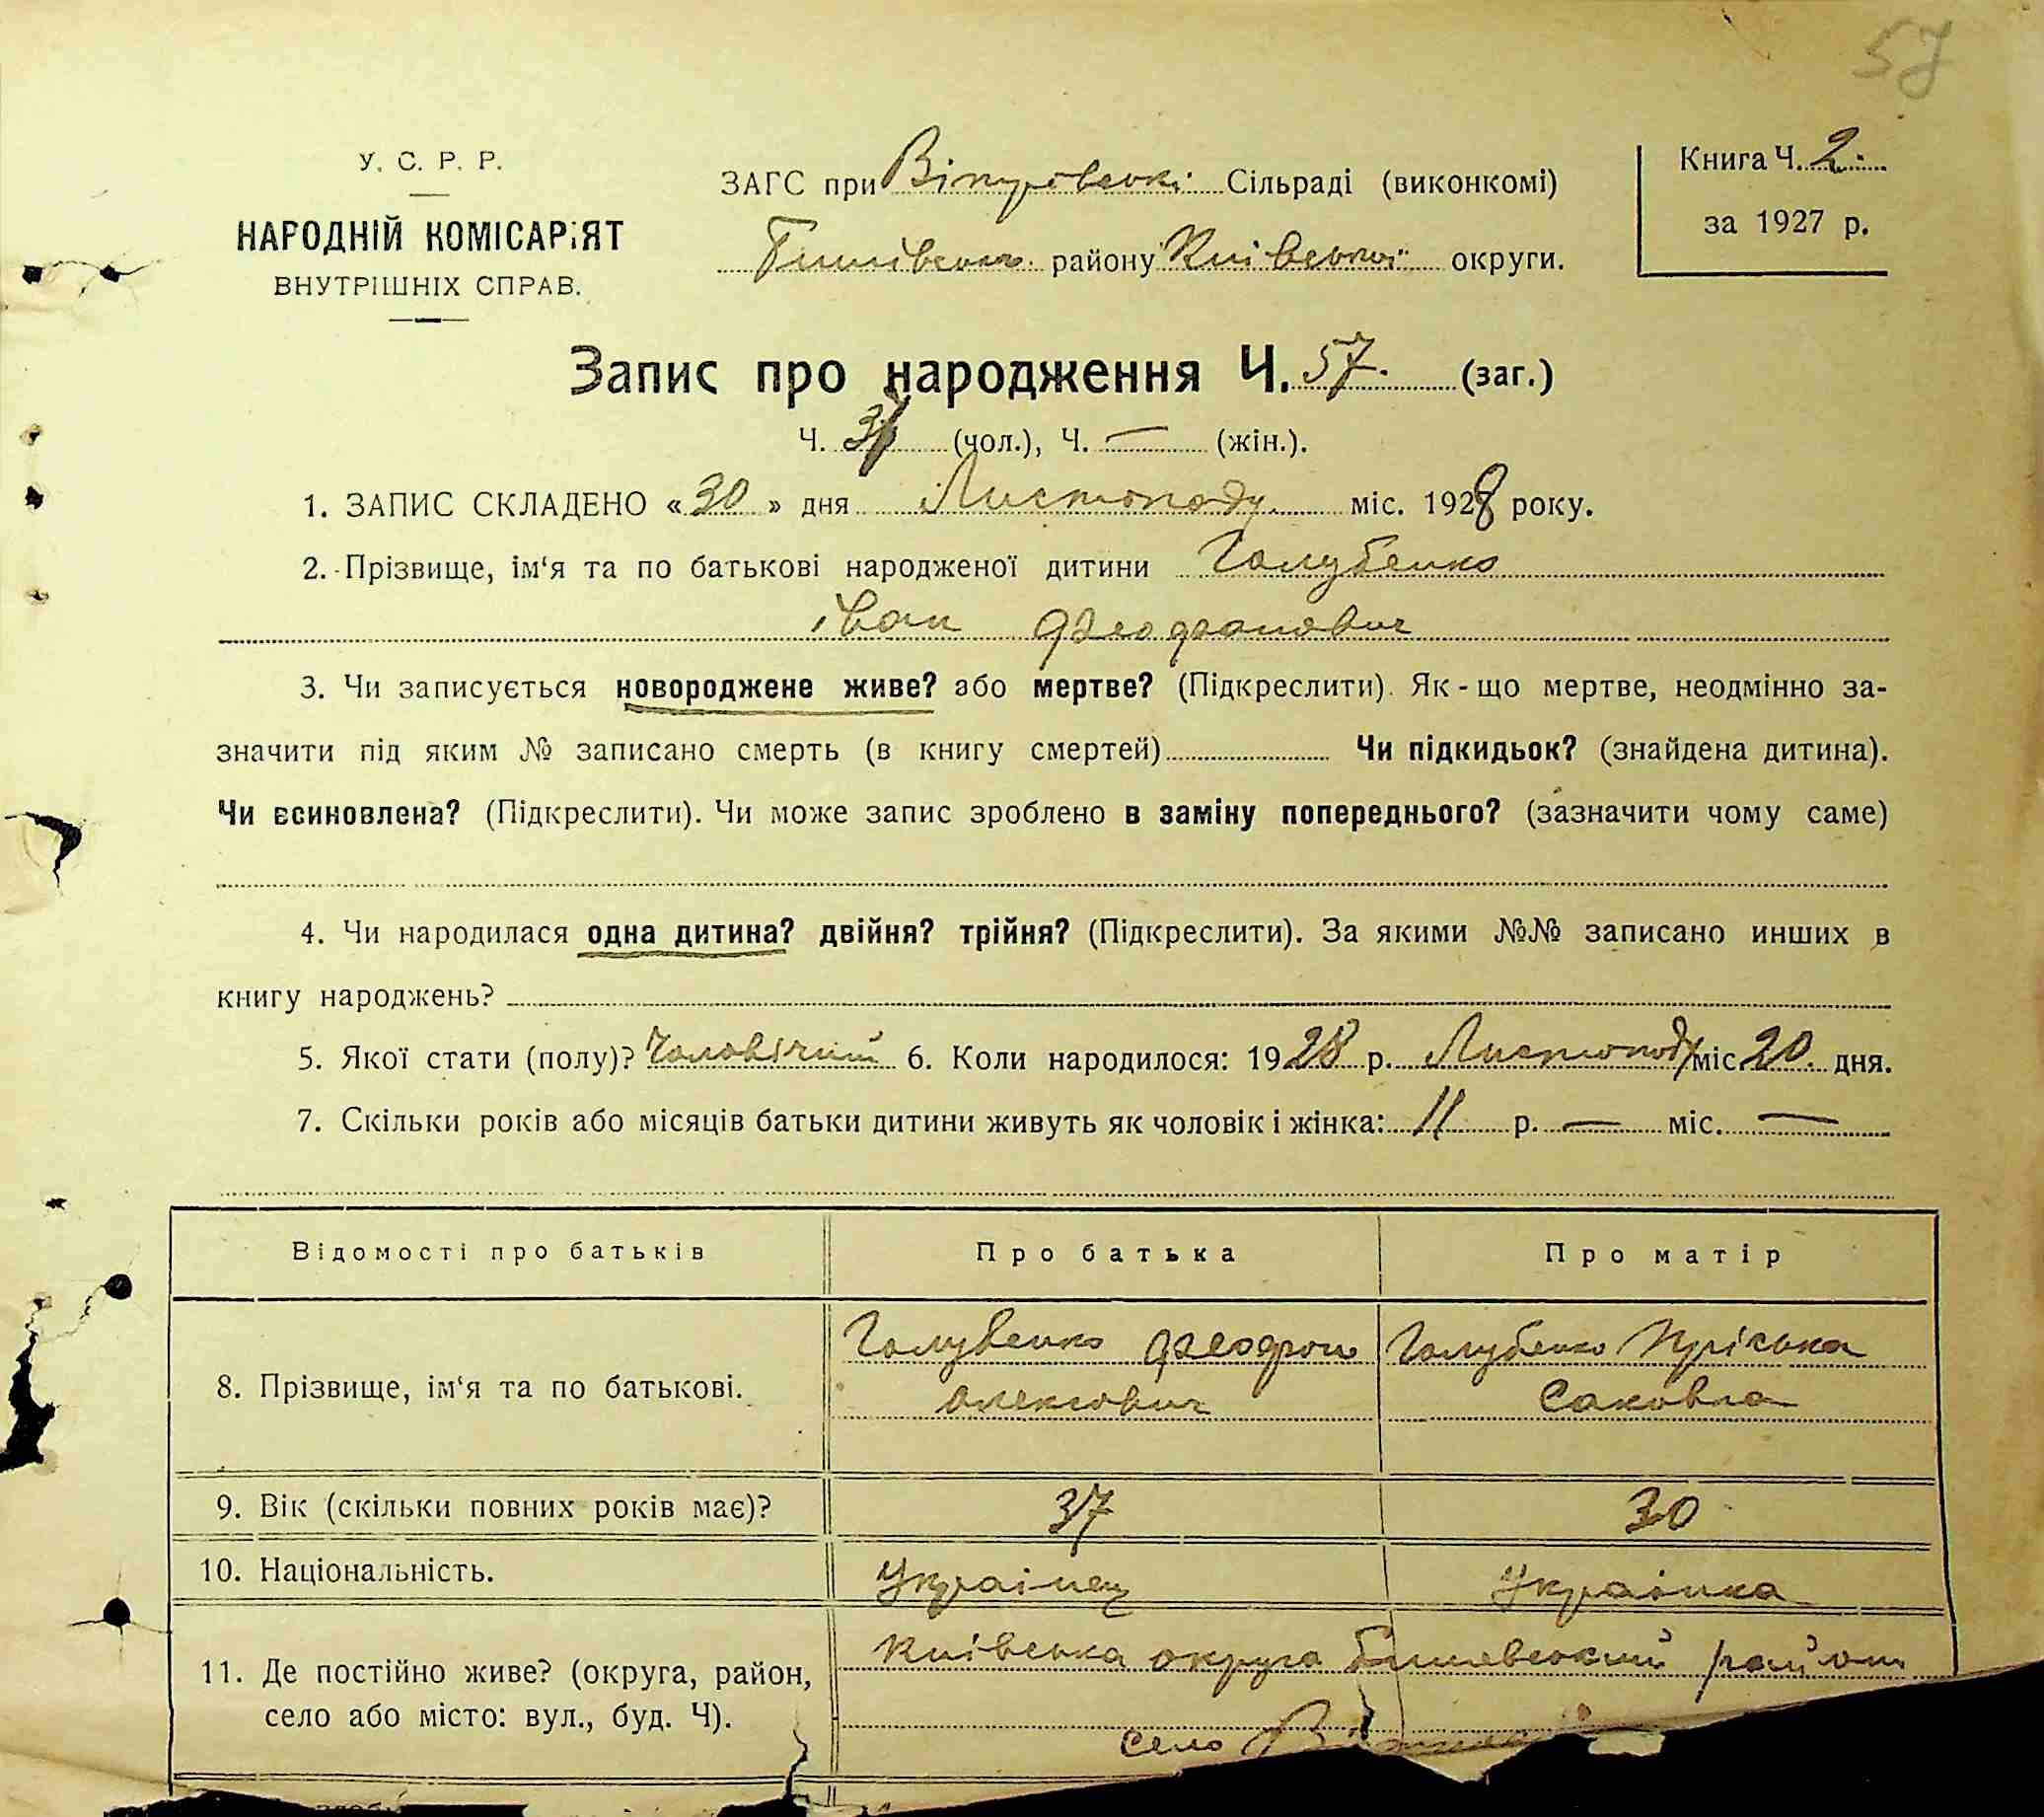 57
У. С. Р. Р.
НАРОДНІЙ КОМІСАРІЯТ
ВНУТРІШНІХ СПРАВ.
ЗАГС при Сільраді (виконкомі)
району Київської округи.
Книга Ч. 2
за 1927 р.
Запис про народження Ч. 57. (заг.)
Ч. (чол.), Ч. — (жін.).
1. ЗАПИС СКЛАДЕНО «30» дня Листопаду міс. 1928 року.
2. Прізвище, ім‘я та по батькові народженої дитини Голубенко
іван Феофанович
3. Чи записується новороджене живе? або мертве? (Підкреслити). Як-що мертве, неодмінно за-
значити під яким № записано смерть (в книгу смертей) Чи підкидьок? (знайдена дитина).
Чи всиновлена? (Підкреслити). Чи може запис зроблено в заміну попереднього? (зазначити чому саме)
4. Чи народилася одна дитина? двійня? трійня? (Підкреслити). За якими №№ записано инших в
книгу народжень?
5. Якої стати (полу)? Чоловічий 6. Коли народилося: 1928 р. Листопаду міс. 20. дня.
7. Скільки років або місяців батьки дитини живуть як чоловік і жінка: 11 р. — міс. —
Відомості про батьків Про батька Про матір
8. Прізвище, ім‘я та по батькові. Голубенко Феофан Голубенко Пріська
Олексович Саковна
9. Вік (скільки повних років має)? 37 30
10. Національність. Українец Українка
11. Де постійно живе? (округа, район, Київська округа район
село або місто: вул., буд. Ч). село